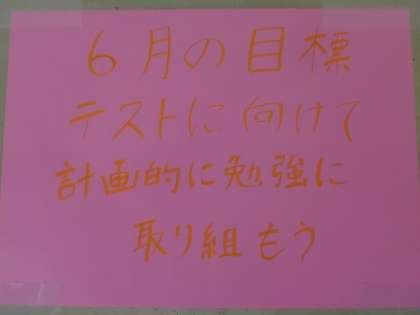 6月の目標
テストに向けて
計画的に勉強に
取り組もう